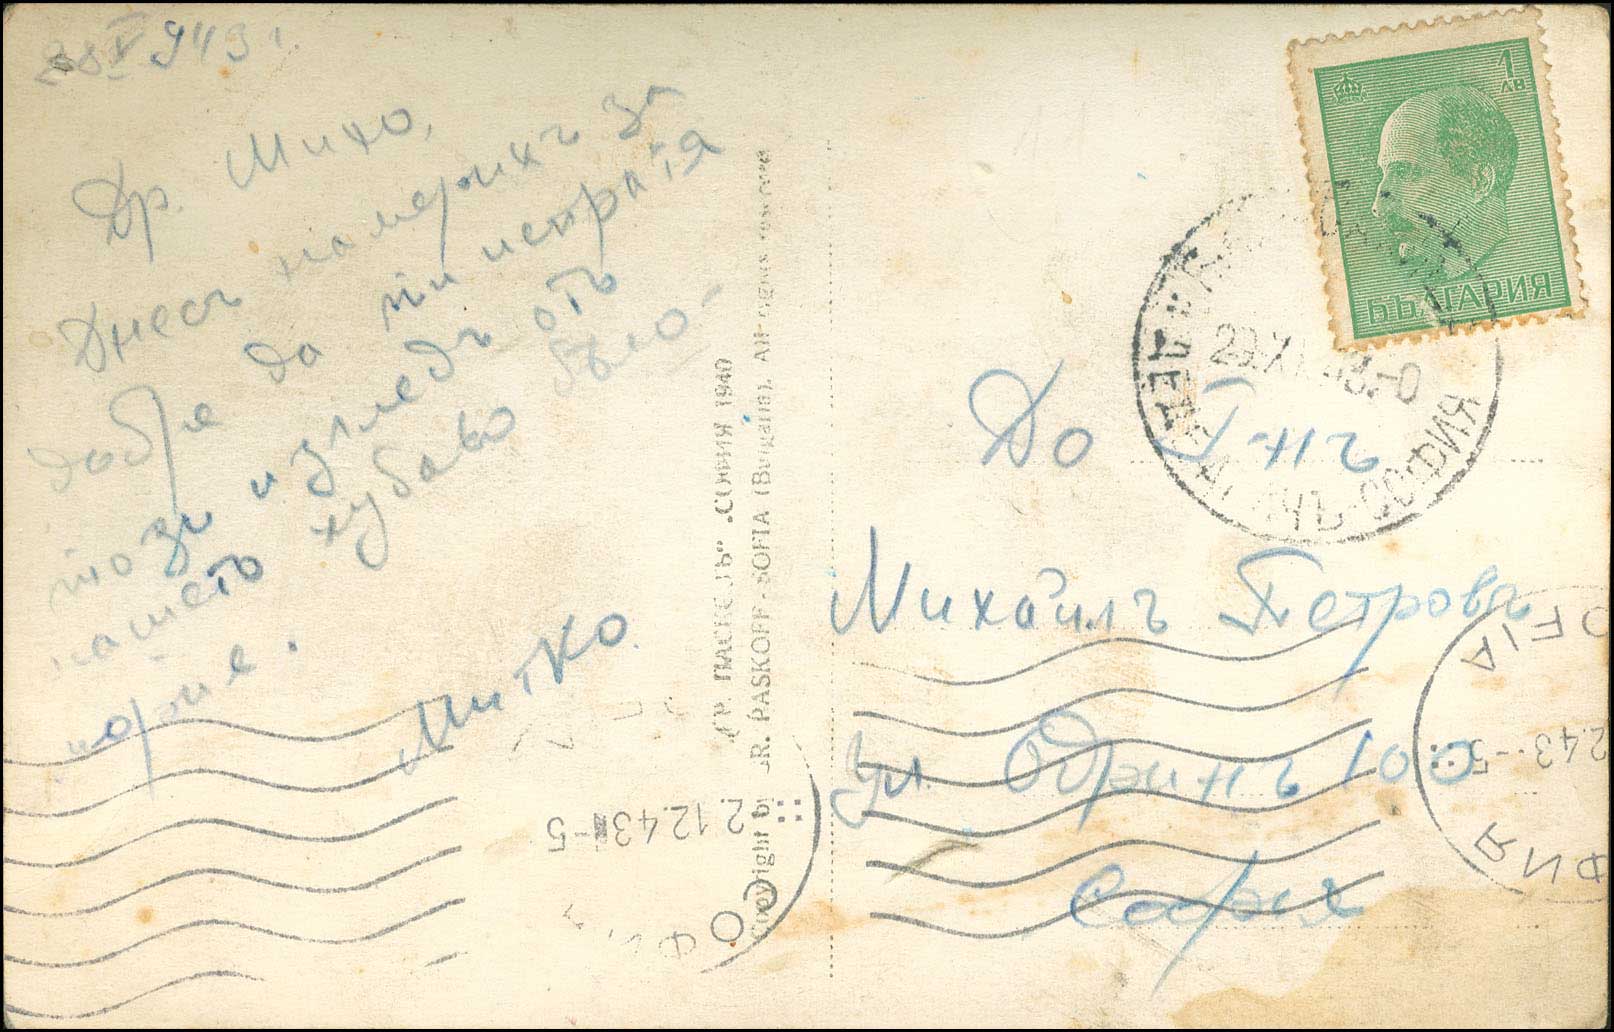 943 г.
Др. Михо,
Днесъ намерихъ за
добре да ти испратя
този изгледъ отъ
нашето хубаво бѣло
море.
Митко.
ГР. ПАСКОВЪ" СОФИЯ 1940
Copyright by GR. PASKOFF - SOFIA (Bulgaria). All rights reserved
1
ЛВ
БЪЛГАРИЯ
СОФИЯ
До Г-нъ
Михаилъ Петровъ
ул. Одринъ 100
София
SOFIA
2.12.43-5
СОФИЯ
2.12.43-5